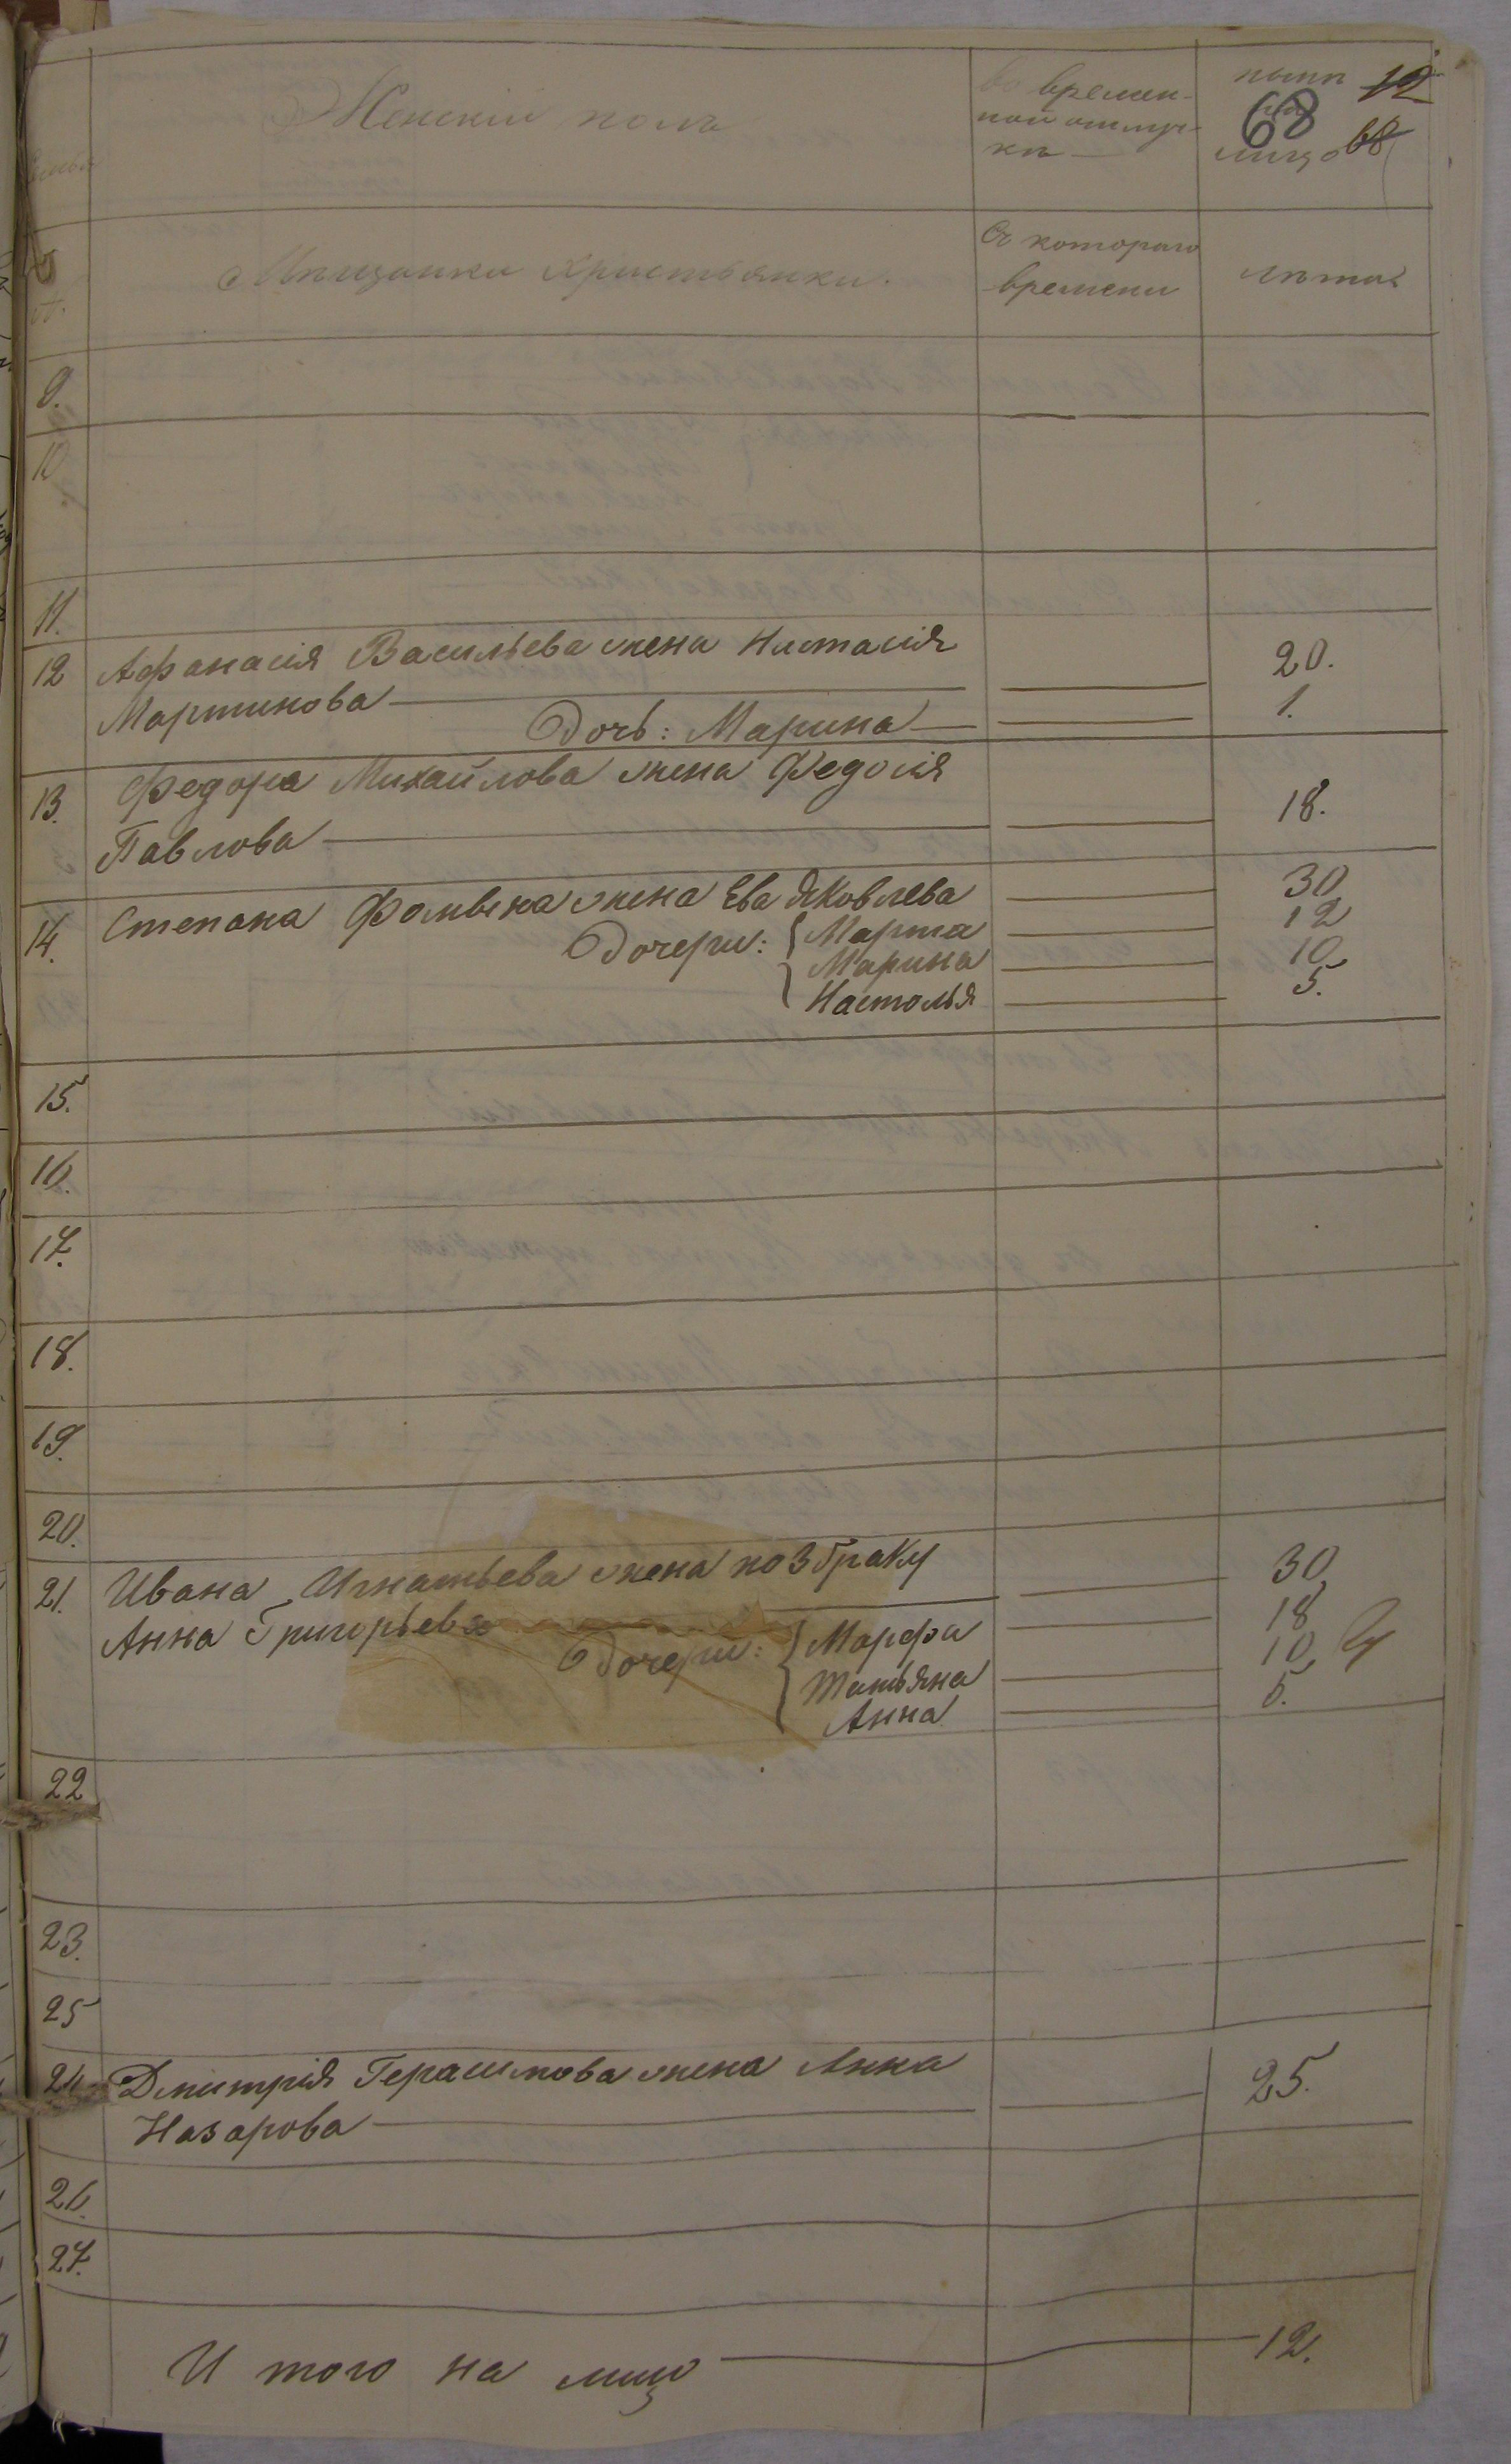 Женскій полъ
во времен-
ной отлуч-
кѣ
нынѣ 12
68
лицо 68
Мѣщанки христьянки.
Съ котораго
времени
лѣта
9.
10
11.
12 Афанасія Васильева жена Настасія
Мартинова 20.
Дочь: Марина 1.
13. Федора Михайлова жена Федосія
Павлова 18.
14. Степана Фомина жена Ева Яковлева 30
Дочери: Марта 12
Марина 10
Настолья 5.
15.
16.
17.
18.
19.
20.
21. Ивана Игнатьева жена по 3 браку
Анна Григорьева 30
Дочери: Марфа 18
Татьяна 10
Анна 5.
22
23.
25
24 Дмитрія Герасимова жена Анна
Назарова 25.
26.
27.
И того на лицо 12.